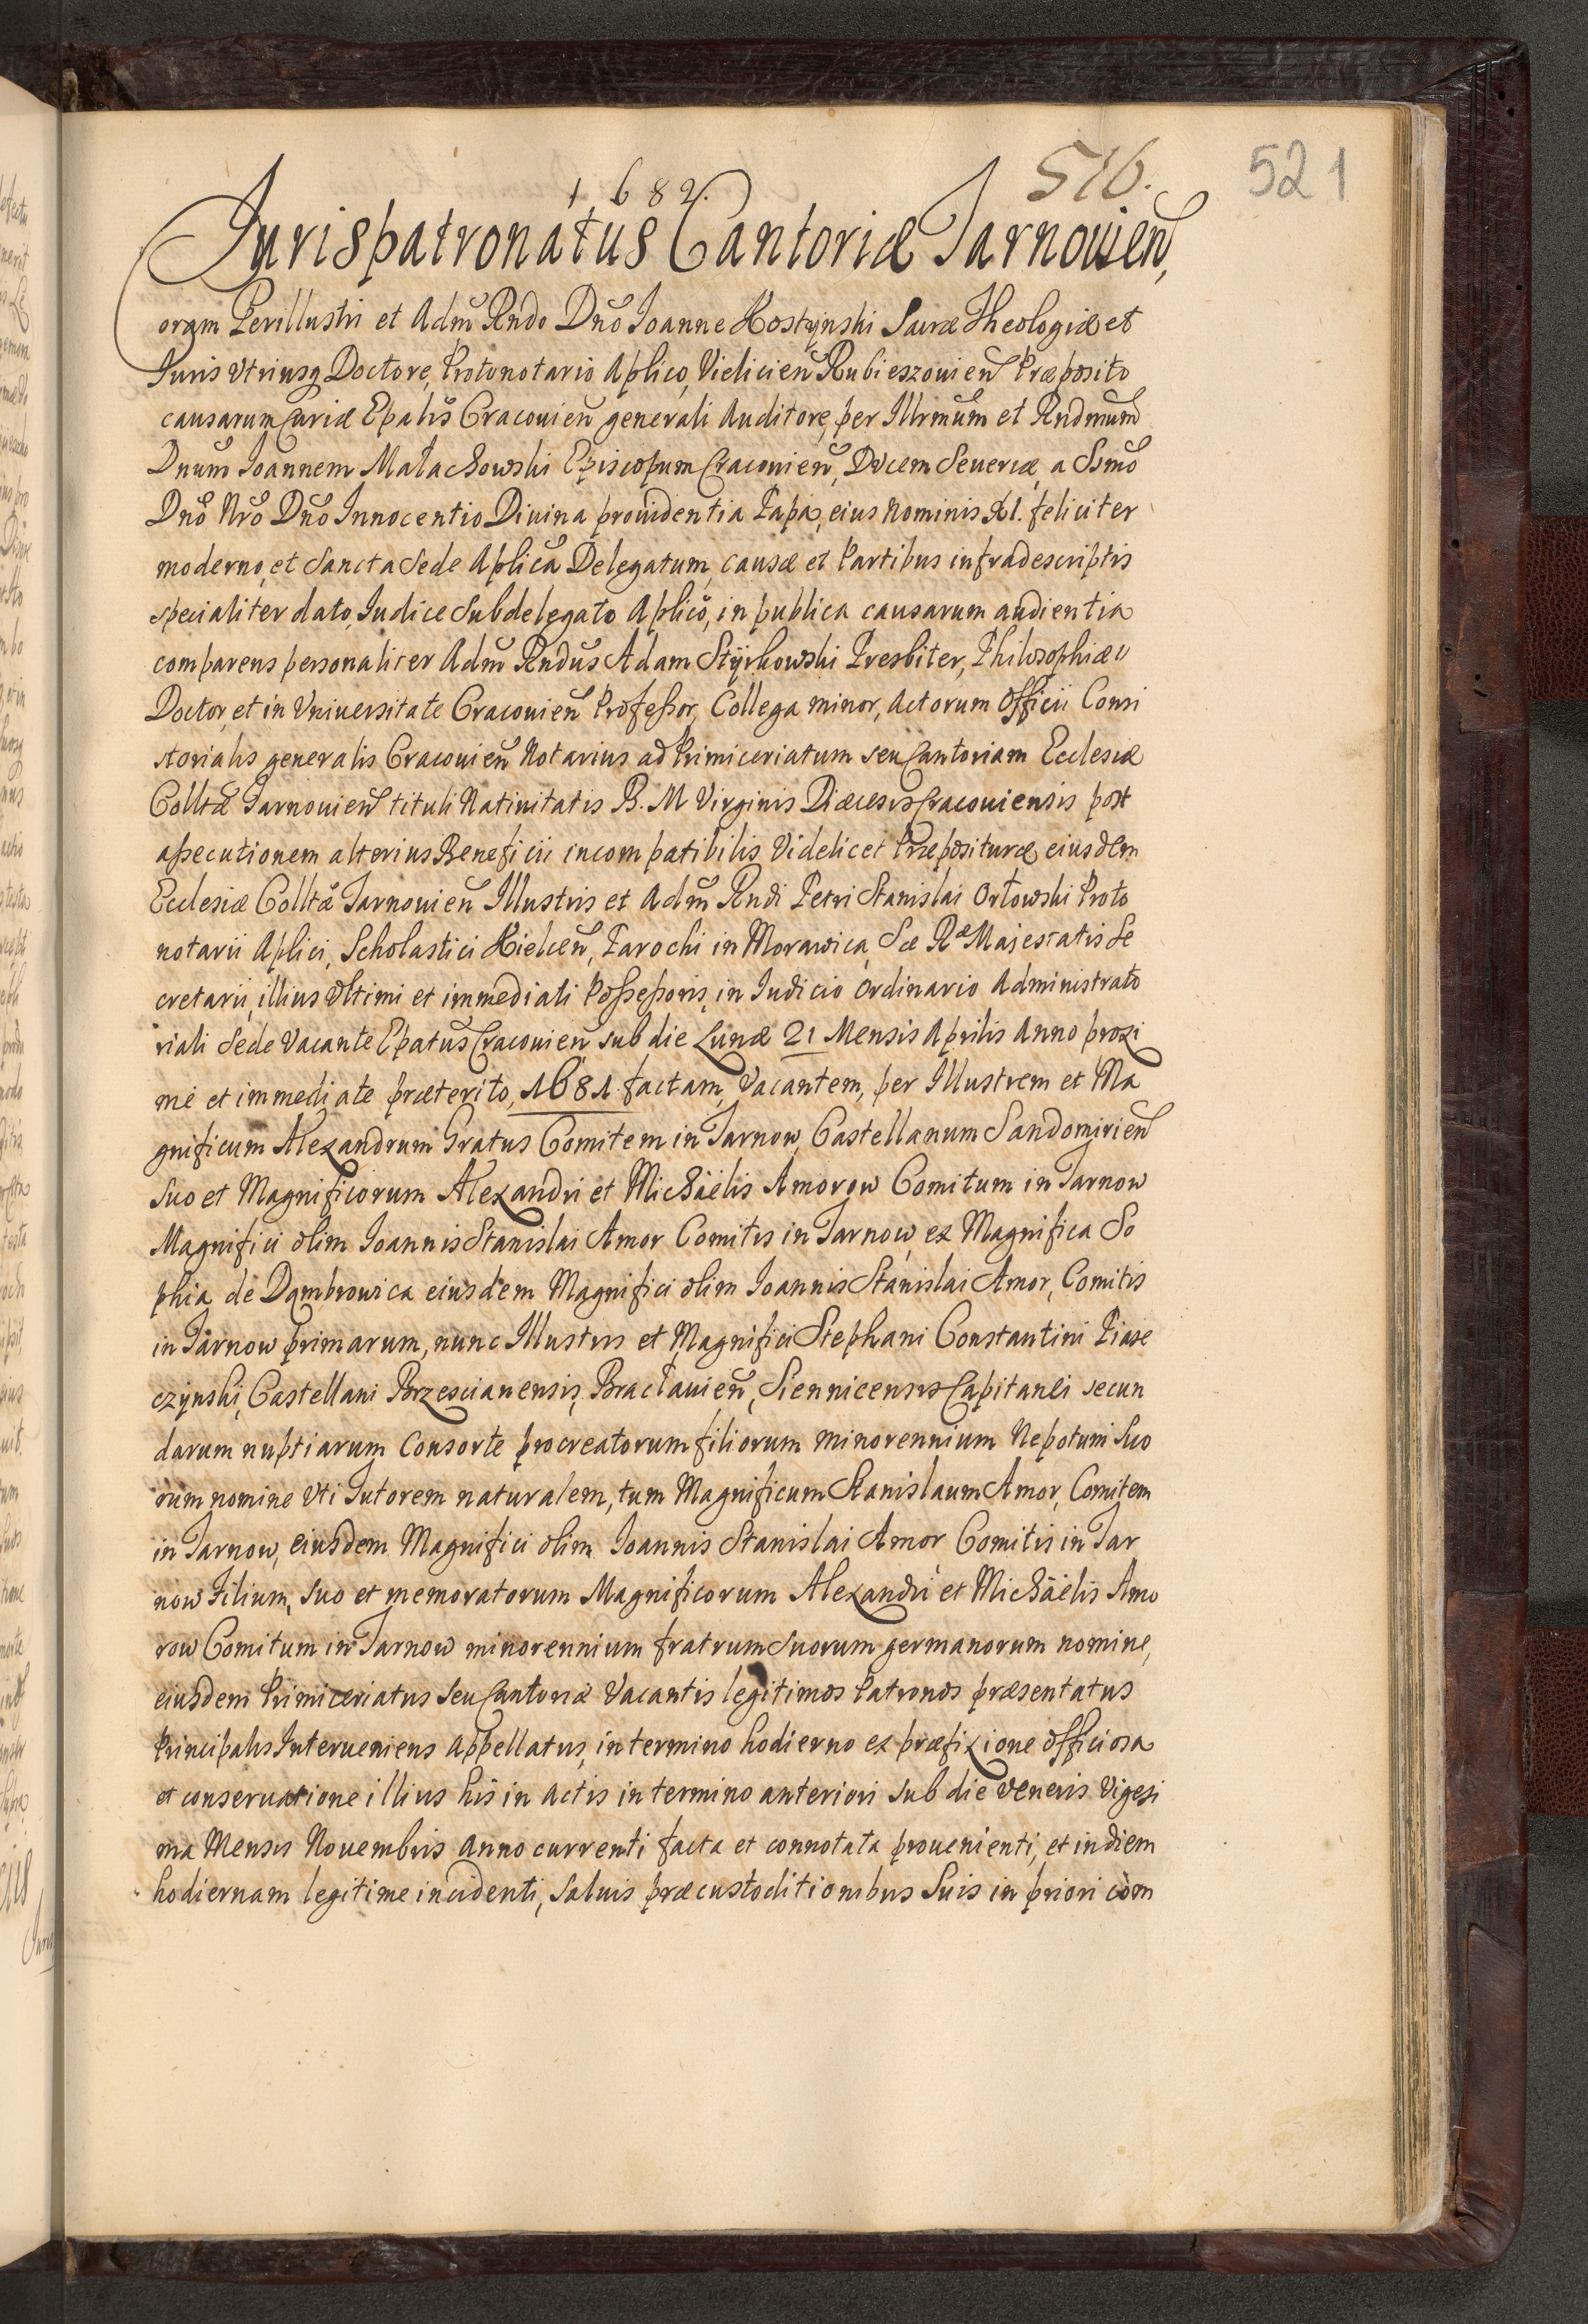 1682.
516.
521
Jurispatronatus Cantoriæ Tarnouien,
Coram Perillustri et Adm̃ Rndo Dnõ Ioanne Kostynski Sacræ Theologiæ et
Iuris Vtriusq Doctore, Protonotario Aplico, Vielicien̄ Rubieszouien̄ Præposito
causarum Curiæ Epalis Cracouien̄ generali Auditore, per Illrmum et Rndmum
Dnum Ioannem Małachowski Episcopum Cracouien̄, Ducem Seueriæ, a Ssmo
Dno Nro Dno Innocentio Diuina prouidentia Papa, eius Nominis XI. feliciter
moderno, et Sancta Sede Aplica Delegatum, causæ et Partibus infradescriptis
specialiter dato, Iudice Subdelegato Aplico, in publica causarum audientia
comparens personaliter Adm̃ Rndus Adam Styrkowski Presbiter, Philosophiæ
Doctor, et in Vniuersitate Cracouien̄ Professor, Collega minor, Actorum Officii Consi
storialis generalis Cracouien̄ Notarius ad Primiceriatum seu Cantoriam Ecclesiæ
Colltæ Tarnouien̄ tituli Natiuitatis B. M Virginis Diæcesis Cracouiensis post
assecutionem alterius Beneficii incompatibilis Videlicet Præposituræ eiusdem
Ecclesiæ Colltæ Tarnouien̄ Illustris et Adm̃ Rndi Petri Stanislai Orłowski Proto
notarii Aplici, Scholastici Kielcen̄, Parochi in Morawica, Sæ Ræ Majestatis Se
cretarii, illius Vltimi et immediati Possessoris, in Iudicio Ordinario Administrato
riali Sede Vacante Epatus Cracouien̄ sub die Lunæ 21 Mensis Aprilis Anno proxi
mé et immediate præterito, 1681. factam, Vacantem, per Illustrem et Ma
gnificum Alexandrum Gratus Comitem in Tarnow, Castellanum Sandomirien̄
Suo et Magnificorum Alexandri et Michäelis Amorow Comitum in Tarnow
Magnifici olim Ioannis Stanislai Amor Comitis in Tarnow, ex Magnifica So
phia de Dąmbrowica eiusdem Magnifici olim Ioannis Stanislai Amor, Comitis
in Tarnow primarum, nunc Illustris et Magnifici Stephani Constantini Piase
czynski, Castellani Brzescianensis, Bracłauien̄, Siennicensis Capitanei secun
darum nuptiarum Consorte procreatorum filiorum minorennium Nepotum Suo
rum nomine Vti Tutorem naturalem, tum Magnificum Stanislaum Amor, Comitem
in Tarnow, eiusdem Magnifici olim Ioannis Stanislai Amor Comitis in Tar
now Filium, Suo et memoratorum Magnificorum Alexandri et Michäelis Amo
row Comitum in Tarnow minorennium fratrum Suorum germanorum nomine,
eiusdem Primiceriatus Seu Cantoriæ Vacantis legitimos Patronos præsentatus
Principalis Interueniens Appellatus, in termino hodierno ex præfixione Officiosa
et conseruatione illius his in Actis in termino anteriori Sub die Veneris Vigesi
ma Mensis Nouembris Anno currenti facta et connotata prouenienti, et in diem
hodiernam legitime incidenti, Saluis præcustoditionibus Suis in priori com